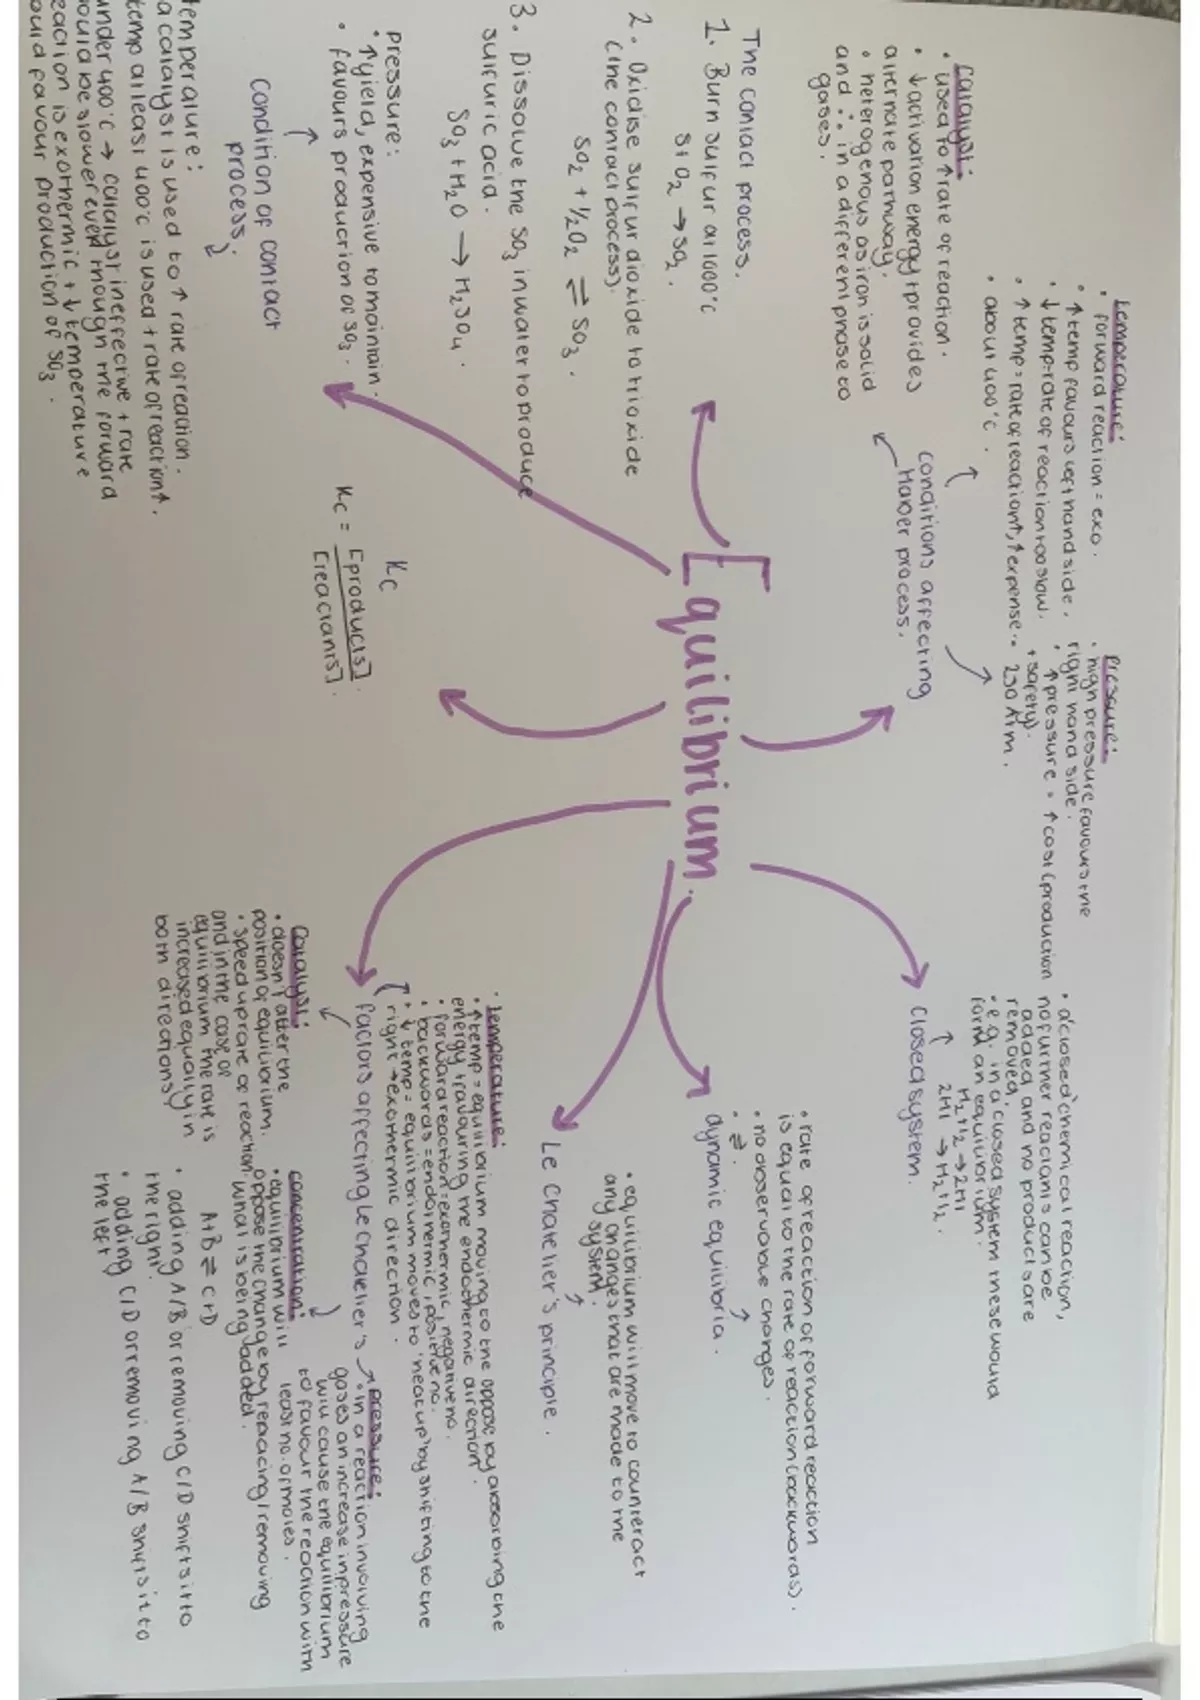 Equilibrium.
The contact process.
1. Burn sulfur at 1000°C
S + O2 → SO2.
2. Oxidise sulfur dioxide to trioxide
(the contact process).
SO2 + 1/2O2 ⇌ SO3.
3. Dissolve the SO3 in water to produce
sulfuric acid.
SO3 + H2O → H2SO4.
conditions affecting
Haber process.
catalyst:
• used to ↑ rate of reaction.
• ↓ activation energy + provides
alternate pathway.
• heterogenous as iron is solid
and ∴ in a different phase to
gases.
temperature:
• forward reaction = exo.
• ↑ temp favours left hand side.
• ↓ temp = rate of reaction too slow.
• ↑ temp = rate of reaction↑, ↑ expense.
• about 400°C.
pressure:
• high pressure favours the
right hand side.
• ↑ pressure = ↑ cost (production
+ safety).
• 250 Atm.
Closed system.
• a 'closed' chemical reaction,
no further reactants can be
added and no products are
removed.
• e.g. in a closed system these would
form an equilibrium:
H2 + I2 → 2HI
2HI → H2 + I2.
dynamic equilibria.
• rate of reaction of forward reaction
is equal to the rate of reaction (backwards).
• no observable changes.
• ⇌.
Le Chatelier's principle.
• equilibrium will move to counteract
any changes that are made to the
system.
factors affecting le chatelier's
• temperature:
• ↑ temp = equilibrium moving to the oppose by absorbing the
energy, favouring the endothermic direction.
• forward reaction = exothermic, negative no.
• backwards = endothermic, positive no.
• ↓ temp = equilibrium moves to 'heat up' by shifting to the
right → exothermic direction.
pressure:
• in a reaction involving
gases an increase in pressure
will cause the equilibrium
to favour the reaction with
least no. of moles.
catalyst:
• doesn't alter the
position of equilibrium.
• speed up rate of reaction
and in the case of
equilibrium the rate is
increased equally in
both directions
concentration:
• equilibrium will
oppose the change by replacing/removing
what is being added.
A+B ⇌ C+D
• adding A/B or removing C/D shifts it to
the right.
• adding C/D or removing A/B shifts it to
the left
Kc
Kc = [products]
[reactants].
Condition of contact
process.
pressure:
• ↑ yield, expensive to maintain.
• favours production of SO3.
temperature:
a catalyst is used to ↑ rate of reaction.
temp at least 400°C is used + rate of reaction↑.
under 400°C → catalyst ineffective + rate
would be slower even though the forward
reaction is exothermic + ↓ temperature
would favour production of SO3.